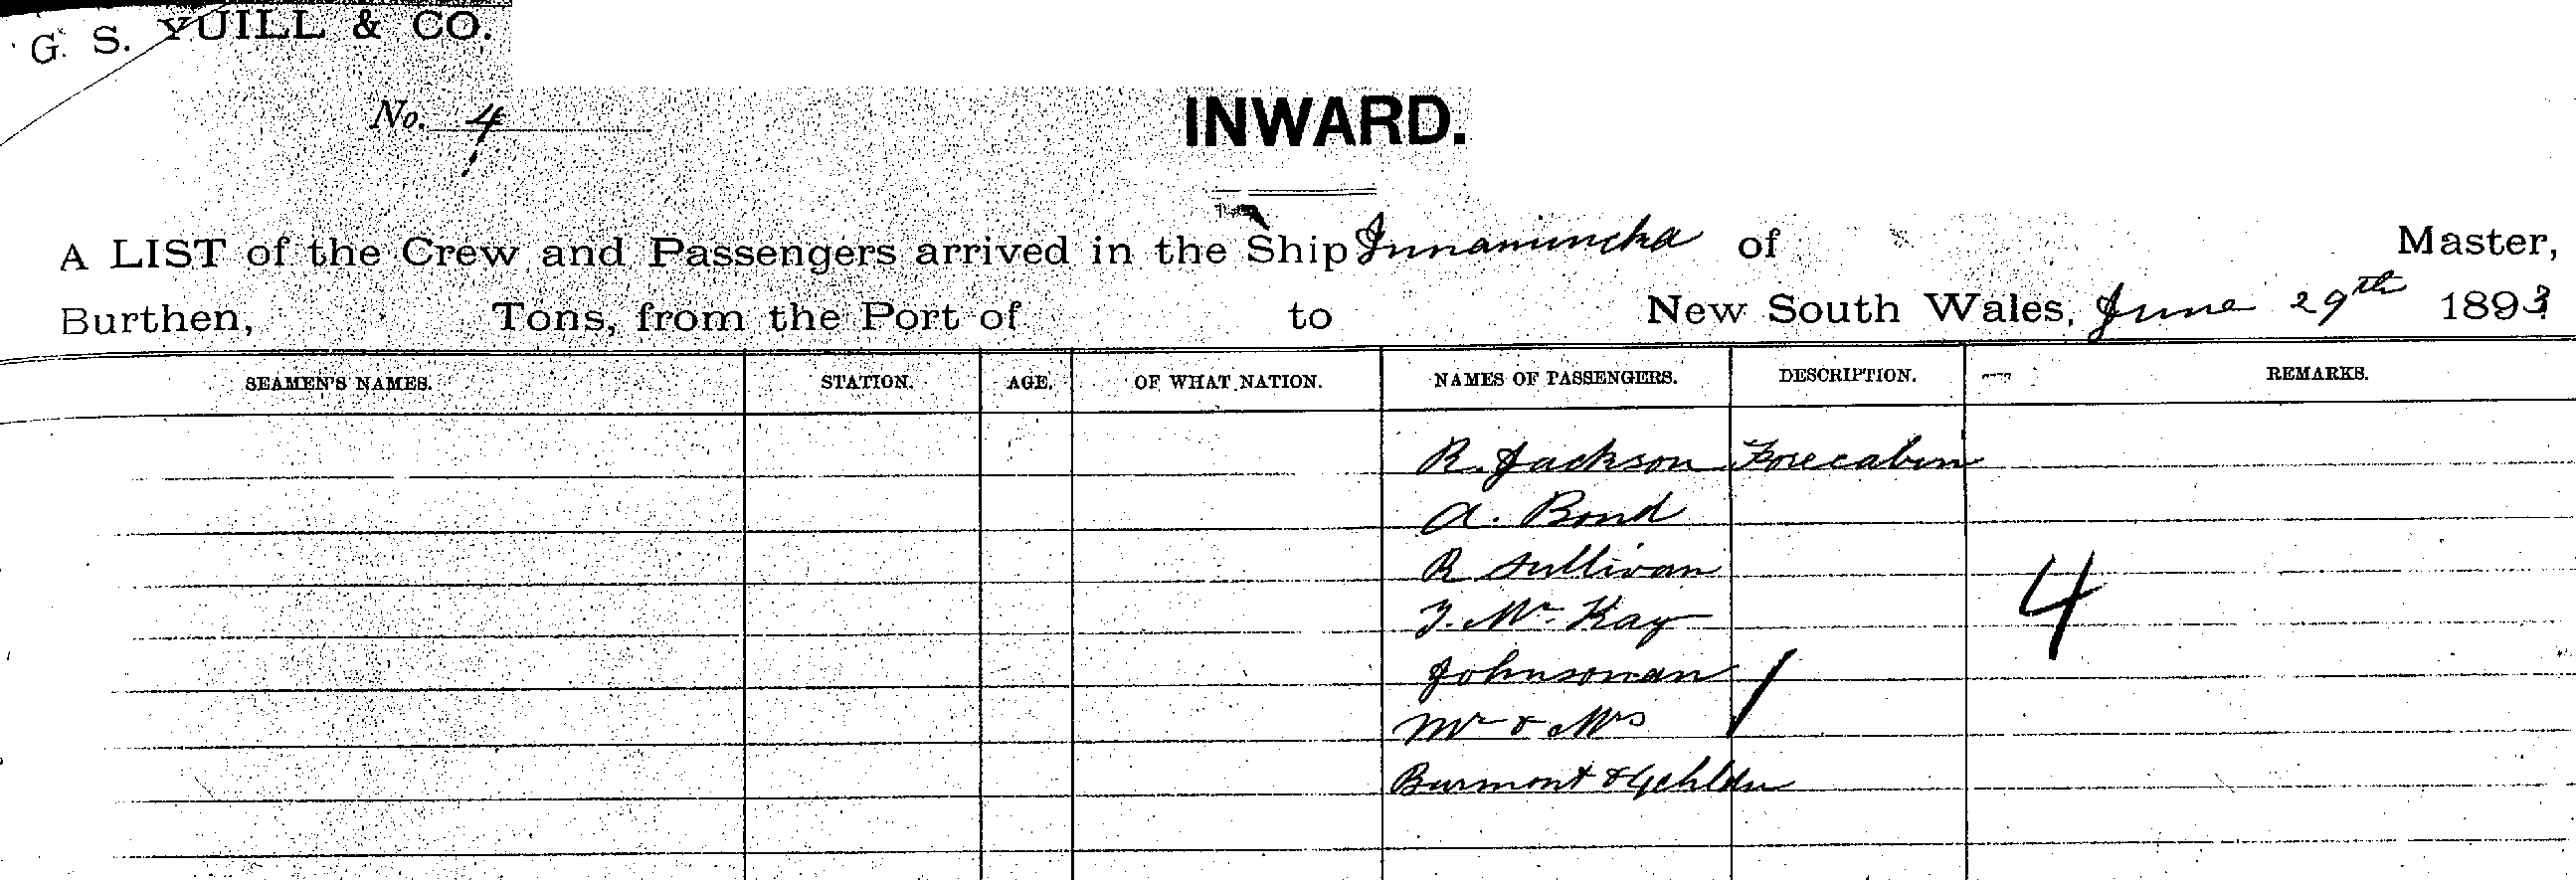 G. S. YUILL & CO.
No. 4
INWARD.
A LIST of the Crew and Passengers arrived in the Ship Innamincka of Master,
Burthen, Tons, from the Port of to New South Wales, June 29th 1893
SEAMEN'S NAMES. STATION. AGE. OF WHAT NATION. NAMES OF PASSENGERS. DESCRIPTION. REMARKS.
R. Jackson Forecabin
A. Bond
R Sullivan
4
J. Mc Kay
Johnsonan
Mr & Mrs
Burmont & 4 chldn